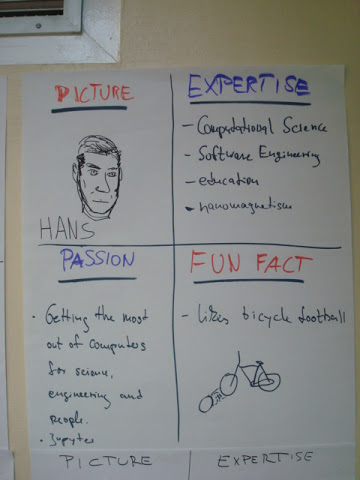 PICTURE
HANS
EXPERTISE
- Computational Science
- Software Engineering
- education
- nanomagnetism
PASSION
· Getting the most
out of computers
for science,
engineering and
people.
· Jupyter
FUN FACT
- likes bicycle football
PICTURE
EXPERTISE